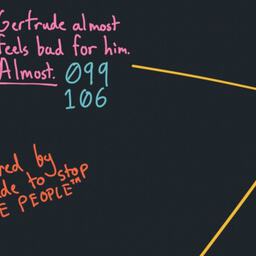 Gertrude almost
feels bad for him.
Almost. 099
106
by
to stop
PEOPLE™